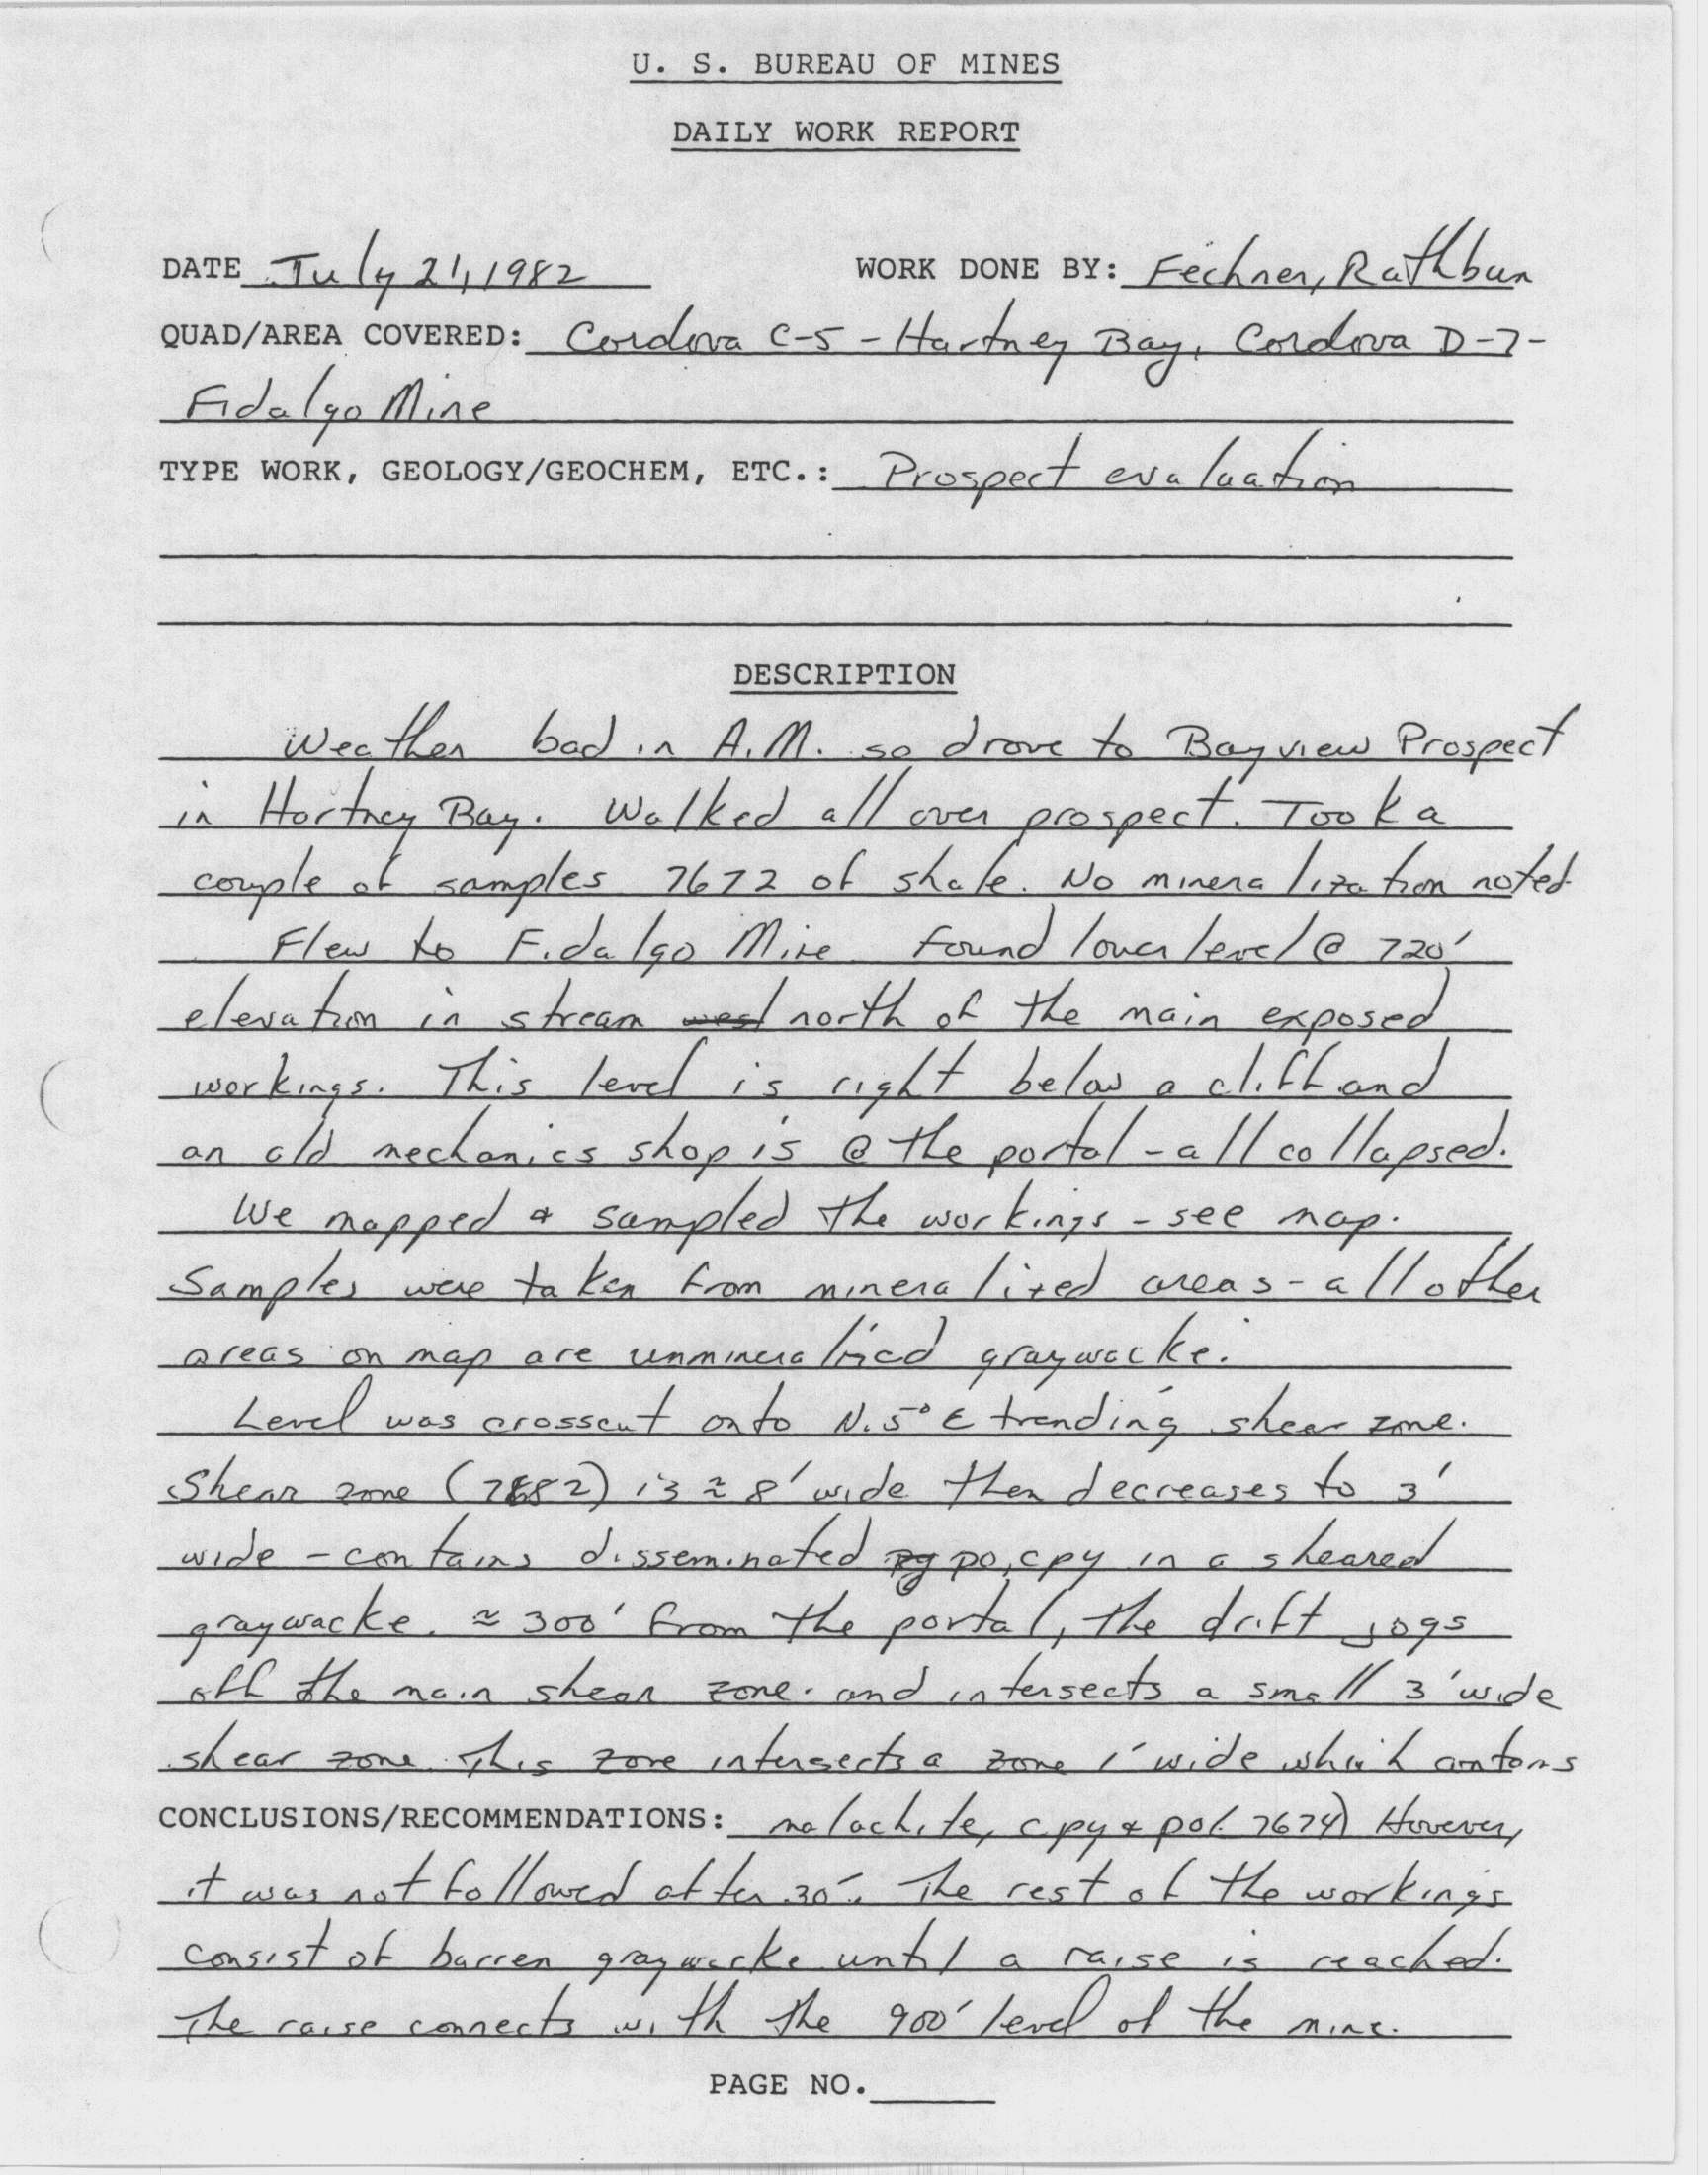 U. S. BUREAU OF MINES
DAILY WORK REPORT
DATE July 21, 1982 WORK DONE BY: Fechner, Rathbun
QUAD/AREA COVERED: Cordova C-5 - Hartney Bay, Cordova D-7-
Fidalgo Mine
TYPE WORK, GEOLOGY/GEOCHEM, ETC.: Prospect evaluation
DESCRIPTION
Weather bad in A.M. so drove to Bayview Prospect
in Hartney Bay. Walked all over prospect. Took a
couple of samples 7672 of shale. No mineralization noted.
Flew to Fidalgo Mine Found lower level @ 720'
elevation in stream west north of the main exposed
workings. This level is right below a cliff and
an old mechanics shop is @ the portal - all collapsed.
We mapped & sampled the workings - see map.
Samples were taken from mineralized areas - all other
areas on map are unmineralized graywacke.
Level was crosscut onto N.5°E trending shear zone.
Shear zone (7682) is ≈ 8' wide then decreases to 3'
wide - contains disseminated po, cpy in a sheared
graywacke. ≈ 300' from the portal, the drift jogs
off the main shear zone. and intersects a small 3' wide
shear zone. This zone intersects a zone 1' wide which contains
CONCLUSIONS/RECOMMENDATIONS: malachite, cpy & po (7674) However,
it was not followed after 30'. The rest of the workings
consist of barren graywacke until a raise is reached.
The raise connects with the 900' level of the mine.
PAGE NO.